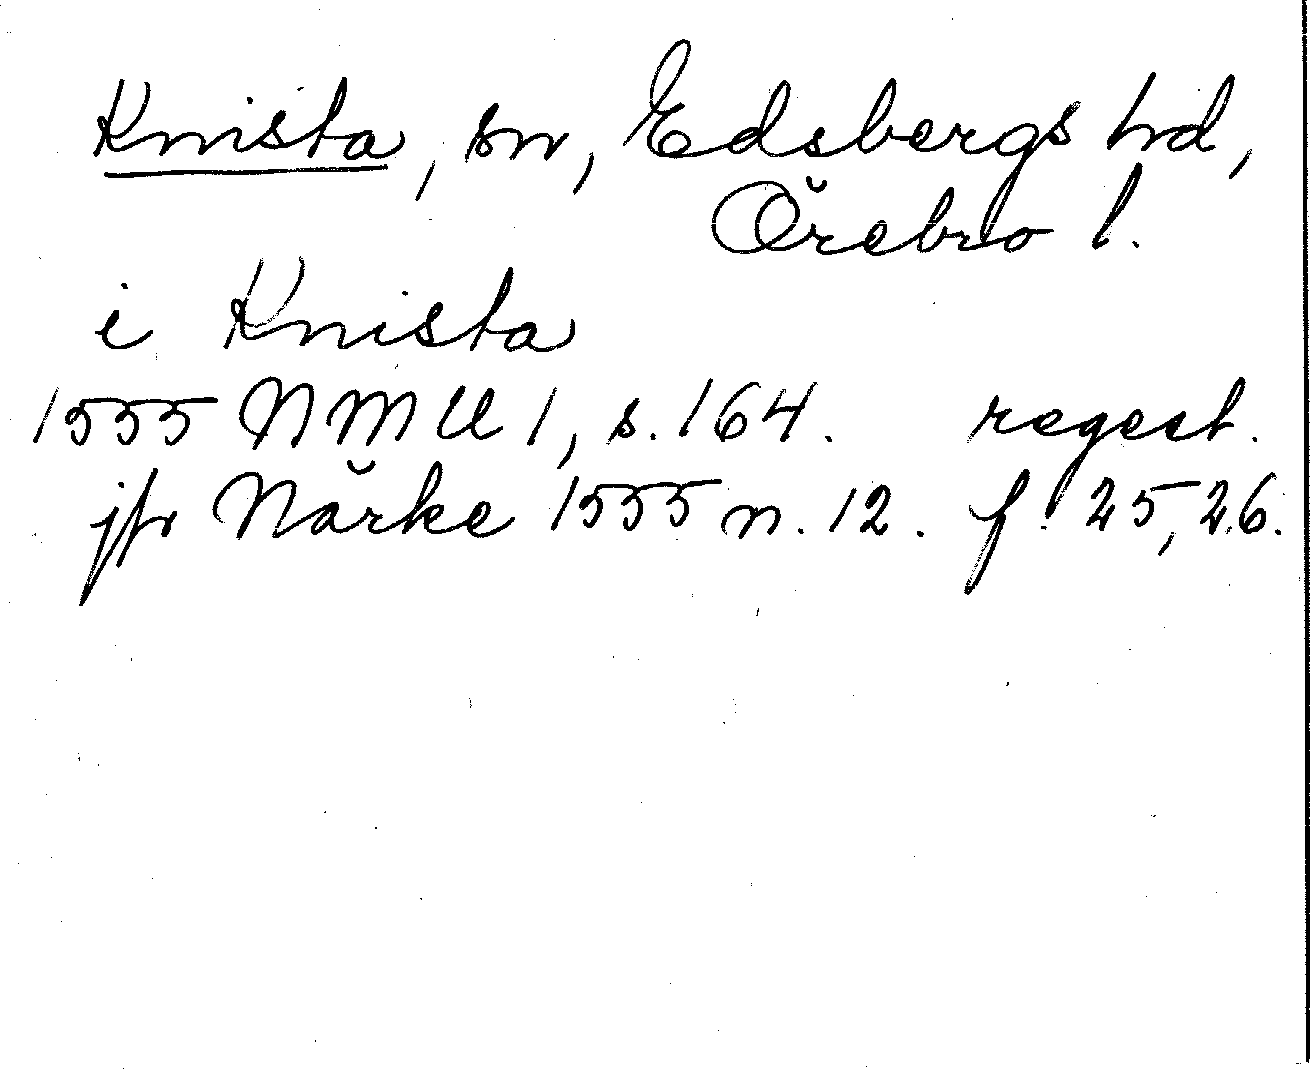 Knista, sn, Edsbergs hd,
Örebro l.
i Knista
1555 NMU 1, s. 164. regest.
jfr Närke 1555 n. 12. f. 25, 26.